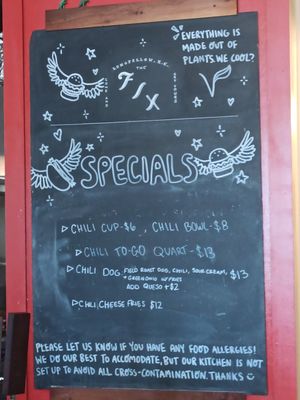 *EVERYTHING IS
MADE OUT OF
PLANTS, WE COOL?*
LONGFELLOW, B.C.
THE
FIX
V
SPECIALS
▷ CHILI CUP-$6, CHILI BOWL-$8
▷ CHILI TO-GO QUART - $13
▷ CHILI DOG FIELD ROAST DOG, CHILI, SOUR CREAM, $13
+ GREEN ONIO W/ FRIES
ADD QUESO +$2
▷ CHILI CHEESE FRIES $12
PLEASE LET US KNOW IF YOU HAVE ANY FOOD ALLERGIES!
WE DO OUR BEST TO ACCOMODATE, BUT OUR KITCHEN IS NOT
SET UP TO AVOID ALL CROSS-CONTAMINATION. THANKS ☺